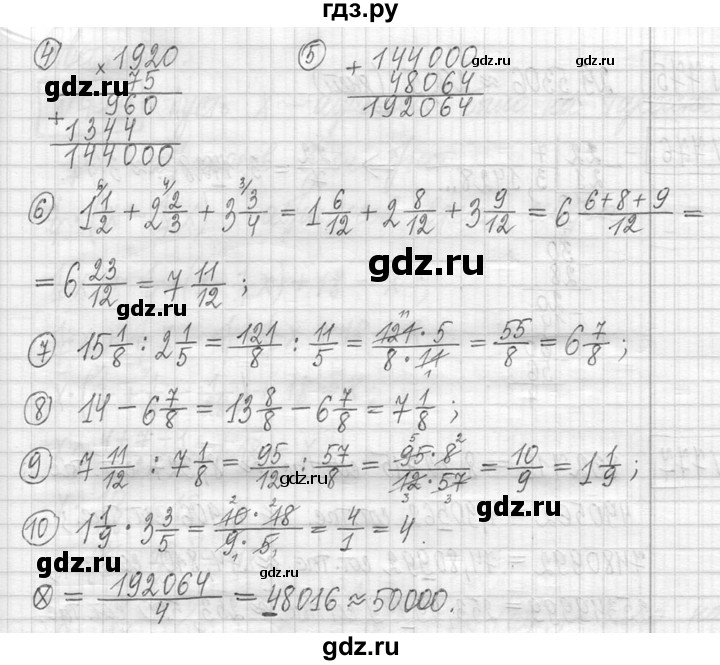 гдз.ру
④ × 1920
75
+ 960
1344
144000
⑤ + 144000
48064
192064
gdz.ru
gdz.ru
gdz.ru
⑥ 1 1/2 + 2 2/3 + 3 3/4 = 1 6/12 + 2 8/12 + 3 9/12 = 6 (6+8+9)/12 =
gdz.ru
= 6 23/12 = 7 11/12 ;
gdz.ru
⑦ 15 1/8 : 2 1/5 = 121/8 : 11/5 = (121·5)/(8·11) = 55/8 = 6 7/8 ;
⑧ 14 − 6 7/8 = 13 8/8 − 6 7/8 = 7 1/8 ;
gdz.ru
⑨ 7 11/12 : 7 1/8 = 95/12 : 57/8 = (95·8)/(12·57) = 10/9 = 1 1/9 ;
gdz.ru
gdz.ru
⑩ 1 1/9 · 3 3/5 = (10·18)/(9·5) = 4/1 = 4.
gdz.ru
gdz.ru
gdz.ru
⊗ = 192064/4 = 48016 ≈ 50000.
gdz.ru